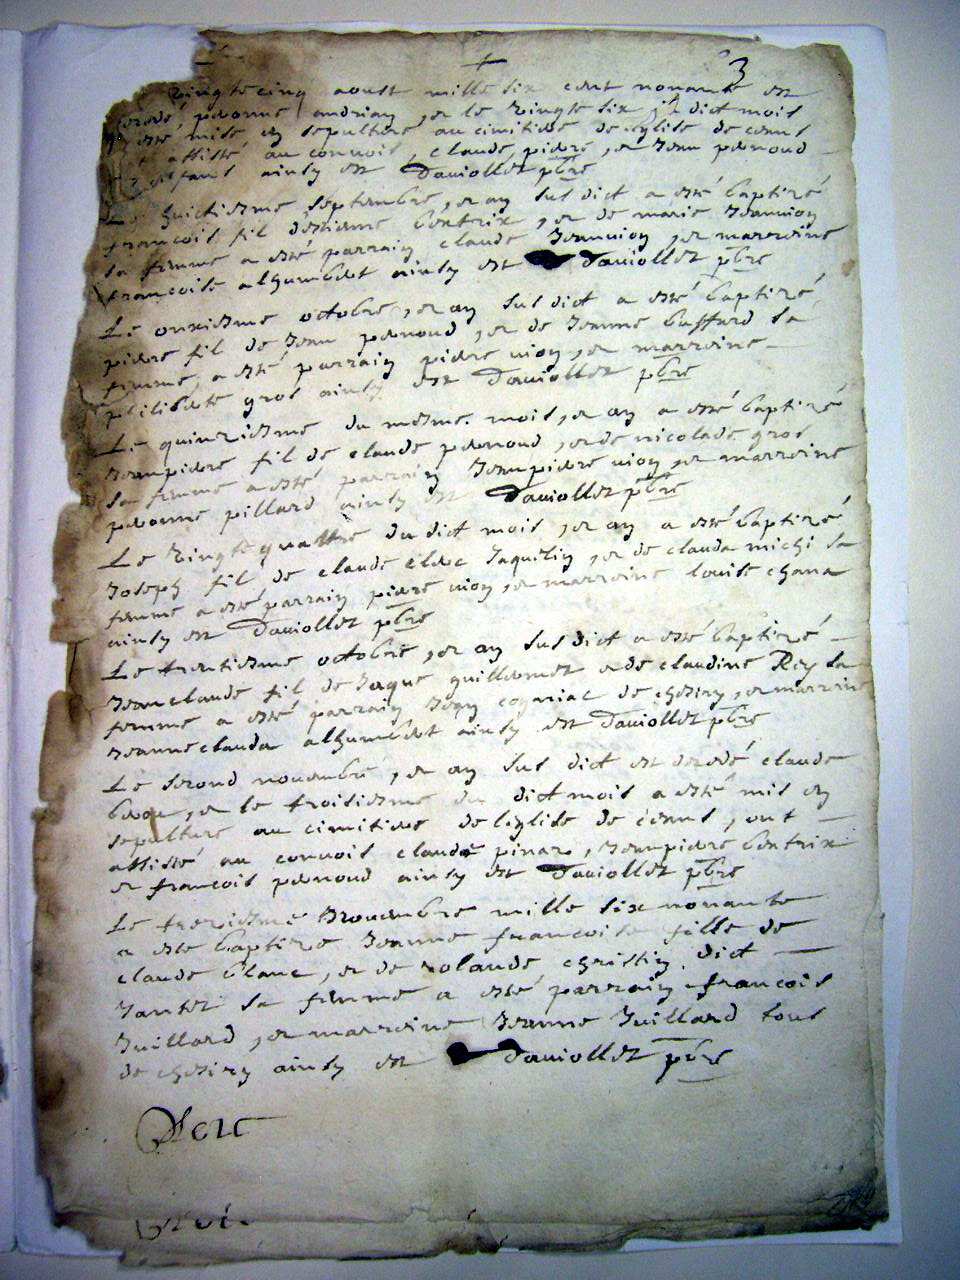 3
vingtecinq aoust mille six cent nonante est
decedé pernoune andrian, et le vingte six du dict mois
esté mise en sepulture au cimitiere de l'eglise de
assisté au convois, claude piare, et Jean pernoud
ainsy est Daviollet pbre
Le huictiesme septembre, et an sus dict a esté baptizé
francois fil d'estienne bentrix, et de marie Jeanvion
sa femme a esté parrain claude Jeanvion, et marreine
francoise alhumbert ainsy est Daviollet pbre
Le onziesme octobre, et an sus dict a esté baptizé
piere fil de Jean pernoud, et de Jeanne bussard sa
femme, a esté parrain piere vion, et marreine
philiberte gros ainsy est Daviollet pbre
Le quinziesme du mesme mois, et an a esté baptizé
Jeanpiere fil de claude pernoud, et de nicolade gros
sa femme a esté parrain Jeanpiere vion, et marreine
pernoune pillard ainsy est Daviollet pbre
Le vingte quattre du dict mois, et an a esté baptizé
Joseph fil de claude Jaquilin, et de clauda michi sa
femme a esté parrain piere vion, et marreine louise chana
ainsy est Daviollet pbre
Le trentiesme octobre, et an sus dict a esté baptizé
Jeanclaude fil de Jaque guillermet et de claudine Rey sa
femme a esté parrain cogniac de chesiry, et marreine
Jeanneclauda alhumbert ainsy est Daviollet pbre
Le second novembre, et an sus dict est decedé claude
et le troisiesme du dict mois a esté mis en
sepulture au cimitiere de l'eglise de, ont
assisté au convois claude pinar, Jeanpiere bentrix
et francois pernoud ainsy est Daviollet pbre
Le treziesme Novembre mille six nonante
a este baptize Jeanne francoise fille de
claude blanc, et de rolande christin dict
Jantet sa femme a esté parrain francois
Juillard, et marreine Jeanne Juillard tous
de chesiry ainsy est Daviollet pbre